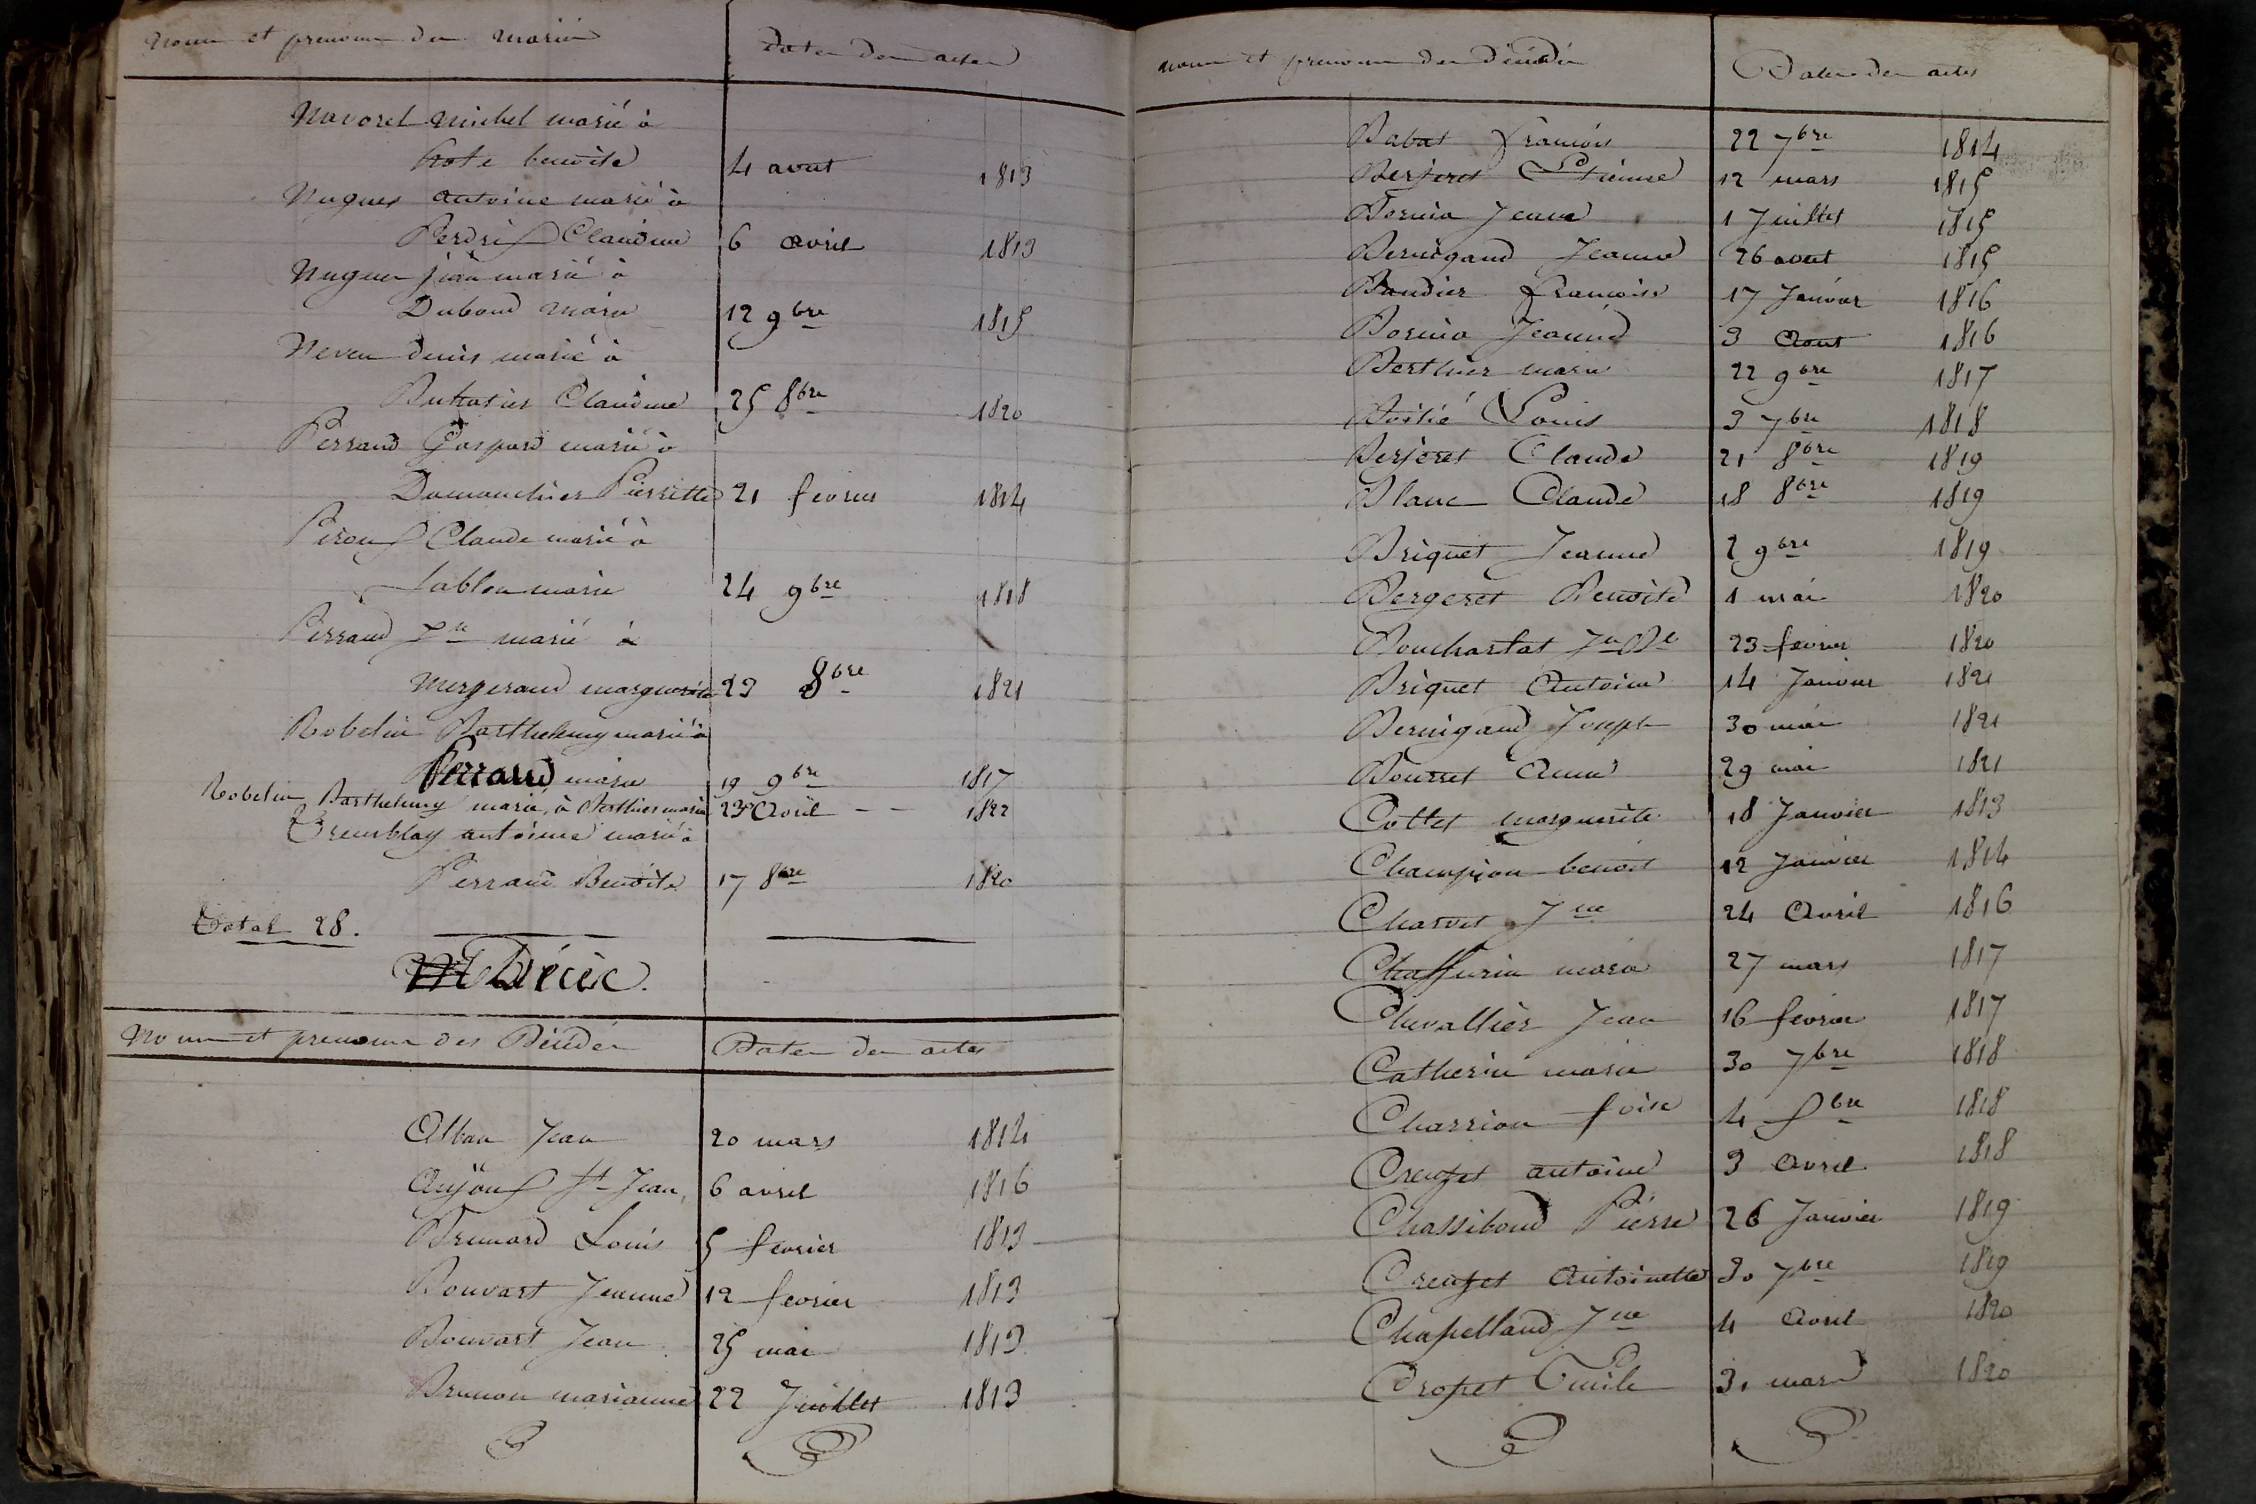 Noms et prenoms des mariés Dates des actes
Navoret michel marié à
hote benoite 4 aout 1813
Nugues antoine marié à
Perdrix Claudine 6 avril 1813
Nugues jean marié à
Duboud marie 12 9bre 1815
Neveu denis marié à
Buhatier Claudine 25 8bre 1820
Perraud Gaspard marié à
Claude marié à
Pierrette 21 fevrier 1814
Sablon marie 24 9bre 1818
Perraud marié à
Mergeraud marguerite 23 8bre 1821
Robelin Barthelemy marié à
Perraud marie 19 9bre 1817
Robelin Barthelemy marié, à Berthier marie 23 Avril - - 1822
Tremblay antoine marié à
Perraud Benoite 17 8bre 1820
total 28.
Décès.
Noms et prenoms des Décédés Dates des actes
Alban Jean 20 mars 1814
St Jean 6 avril 1816
Brunard Louis 5 fevrier 1813
Bouvart Jeanne 12 fevrier 1813
Bouvart Jean 25 mai 1813
Brunon marianne 22 Juillet 1813
noms et prenoms des Décédés Dates des actes
Babat françois 22 7bre 1814
Berjeret Etienne 12 mars 1815
Bornia Jeanne 1 Juillet 1815
Bernigaud Jeanne 26 aout 1815
Baudier françoise 17 Janvier 1816
Bornia Jeanne 3 Aout 1816
Berthier marie 22 9bre 1817
Louis 3 7bre 1818
Berjeret Claude 21 8bre 1819
Blanc Claude 18 8bre 1819
Briquet Jeanne 2 9bre 1819
Bergeret Benoite 1 mai 1820
Bouchartat Jn Bte 23 fevrier 1820
Briquet Antoine 14 Janvier 1821
Bernigaud Joseph 30 mai 1821
Bourret Anne 29 mai 1821
Collet marguerite 18 Janvier 1813
Champion benoit 12 Janvier 1814
Charvet Jne 24 Avril 1816
Chaffurin marie 27 mars 1817
Chevallier Jean 16 fevrier 1817
Catherin marie 30 7bre 1818
Charrion foise 4 1818
Creuzet antoine 3 Avril 1818
Chassiboud Pierre 26 Janvier 1819
Creuzet Antoinette 30 7bre 1819
Chapelland Jne 4 Avril 1820
Cropet Emile 31 mars 1820